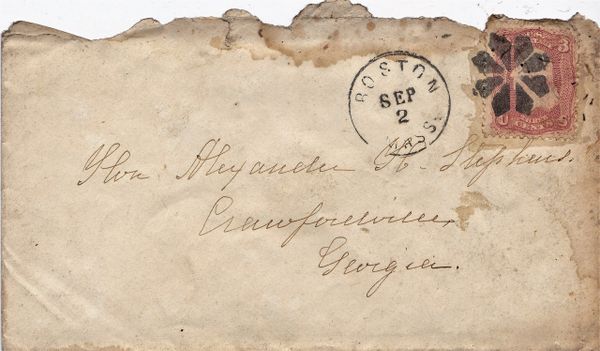 BOSTON MASS.
SEP
2
3
Hon Alexander H. Stephens.
Crawfordville,
Georgia.